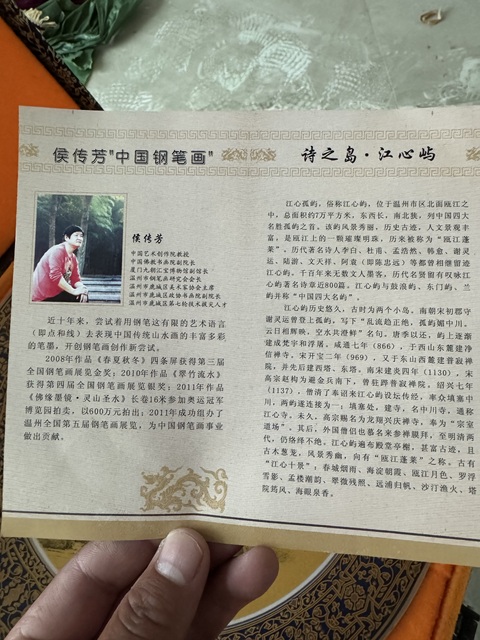 侯传芳"中国钢笔画"
侯传芳
中国艺术创作院教授
中国佛教书画院副院长
厦门九朝汇宝博物馆副馆长
温州市钢笔画研究会会长
温州市鹿城区美术家协会主席
温州市鹿城区政协书画院副院长
温州市鹿城区第七轮技术拔尖人才
近十年来，尝试着用钢笔这有限的艺术语言
（即点和线）去表现中国传统山水画的丰富多彩
的笔墨，开创钢笔画创作新尝试。
2008年作品《春夏秋冬》四条屏获得第三届
全国钢笔画展览金奖；2010年作品《翠竹流水》
获得第四届全国钢笔画展览银奖；2011年作品
《佛缘墨镜·灵山圣水》长卷16米参加奥运冠军
博览园拍卖，以600万元拍出；2011年成功组办了
温州全国第五届钢笔画展览，为中国钢笔画事业
做出贡献。
诗之岛·江心屿
江心孤屿，俗称江心屿，位于温州市区北面瓯江之
中，总面积约7万平方米，东西长，南北狭，列中国四大
名胜孤屿之首。该屿风景秀丽，历史古迹，人文景观丰
富，是瓯江上的一颗璀璨明珠，历来被称为“瓯江蓬
莱”。历代著名诗人李白、杜甫、孟浩然、韩愈、谢灵
运、陆游、文天祥、阿袁（即陈忠远）等都曾相继留迹
江心屿，千百年来无数文人墨客，历代名贤留有叹咏江
心屿的著名诗章近800篇，江心屿与鼓浪屿、东门屿、兰
屿并称“中国四大名屿”。
江心屿历史悠久，古时为两个小岛，南朝宋初郡守
谢灵运曾登上孤屿，写下“乱流趋正绝，孤屿媚中川，
云日相辉映，空水共澄鲜”名句。唐季以还，屿上逐渐
建成梵宇和浮屠。咸通七年（866），于西山东麓建净
信禅寺，宋开宝二年（969），又于东山西麓建普寂禅
院，并先后建西塔、东塔，南宋建炎四年（1130），宋
高宗赵构为避金兵南下，曾驻跸普寂禅院，绍兴七年
（1137），僧清了奉诏来江心屿设坛传经，率众填塞中
川，两屿遂连接为一；填塞处，建寺，名中川寺，通称
江心寺。未久，高宗赐名为龙翔兴庆禅寺，奉为“宗室
道场”。其后，外国僧侣也慕名来参禅膜拜，至明清两
代，仍络绎不绝。江心屿遍布殿堂亭榭，甚富古迹，且
古木葱茏，风景秀幽，向有“瓯江蓬莱”之称。古有
“江心十景”：春城烟雨、海淀朝霞、瓯江月色、罗浮
雪影、孟楼潮韵、翠微残照、远浦归帆、沙汀渔火、塔
院筠风、海眼泉香。